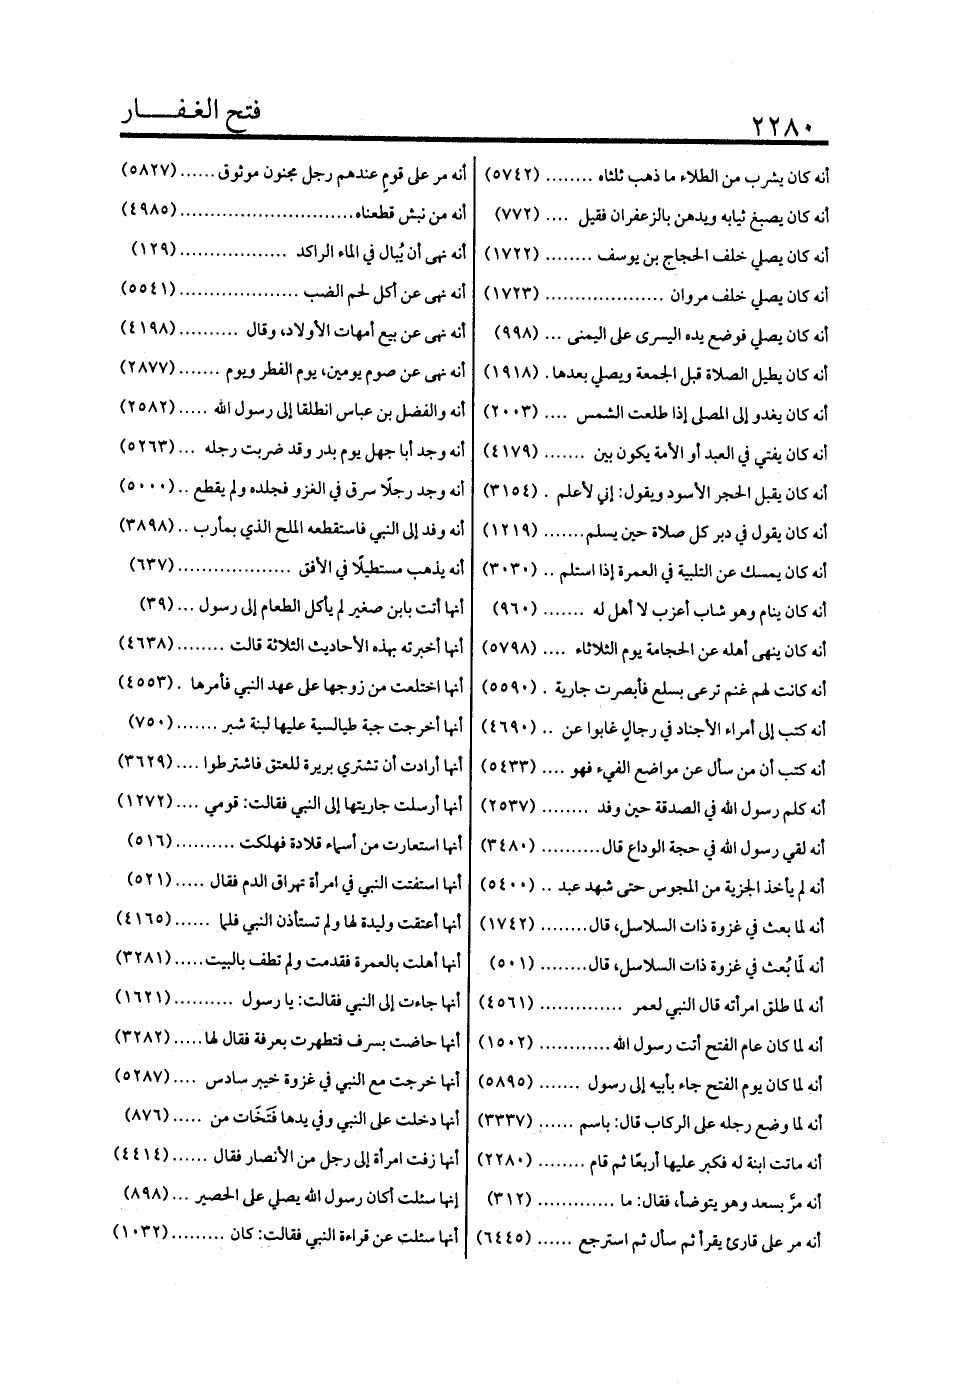 ٢٢٨٠
فتح الغفـــــار
أنه كان يشرب من الطلاء ما ذهب ثلثاه ........ (٥٧٤٢)
أنه كان يصبغ ثيابه ويدهن بالزعفران فقيل .... (٧٧٢)
أنه كان يصلي خلف الحجاج بن يوسف ........ (١٧٢٢)
أنه كان يصلي خلف مروان .................... (١٧٢٣)
أنه كان يصلي فوضع يده اليسرى على اليمنى ... (٩٩٨)
أنه كان يطيل الصلاة قبل الجمعة ويصلي بعدها. (١٩١٨)
أنه كان يغدو إلى المصلى إذا طلعت الشمس .... (٢٠٠٣)
أنه كان يفتي في العبد أو الأمة يكون بين ....... (٤١٧٩)
أنه كان يقبل الحجر الأسود ويقول: إني لأعلم . (٣١٥٤)
أنه كان يقول في دبر كل صلاة حين يسلم....... (١٢١٩)
أنه كان يمسك عن التلبية في العمرة إذا استلم .. (٣٠٣٠)
أنه كان ينام وهو شاب أعزب لا أهل له ....... (٩٦٠)
أنه كان ينهى أهله عن الحجامة يوم الثلاثاء .... (٥٧٩٨)
أنه كانت لهم غنم ترعى بسلع فأبصرت جارية . (٥٥٩٠)
أنه كتب إلى أمراء الأجناد في رجالٍ غابوا عن .. (٤٦٩٠)
أنه كتب أن من سأل عن مواضع الفيء فهو .... (٥٤٣٣)
أنه كلم رسول الله في الصدقة حين وفد ........ (٢٥٣٧)
أنه لقي رسول الله في حجة الوداع قال.......... (٣٤٨٠)
أنه لم يأخذ الجزية من المجوس حتى شهد عبد .. (٥٤٠٠)
أنه لما بعث في غزوة ذات السلاسل، قال........ (١٧٤٢)
أنه لمّا بُعث في غزوة ذات السلاسل، قال........ (٥٠١)
أنه لما طلق امرأته قال النبي لعمر .............. (٤٥٦١)
أنه لما كان عام الفتح أتت رسول الله............ (١٥٠٢)
أنه لما كان يوم الفتح جاء بأبيه إلى رسول ....... (٥٨٩٥)
أنه لما وضع رجله على الركاب قال: باسم ...... (٣٣٣٧)
أنه ماتت ابنة له فكبر عليها أربعًا ثم قام ........ (٢٢٨٠)
أنه مرَّ بسعد وهو يتوضأ، فقال: ما ............. (٣١٢)
أنه مر على قارئ يقرأ ثم سأل ثم استرجع ...... (٦٤٤٥)
أنه مر على قومٍ عندهم رجل مجنون موثوق ...... (٥٨٢٧)
أنه من نبش قطعناه............................ (٤٩٨٥)
أنه نهى أن يُبال في الماء الراكد ................. (١٢٩)
أنه نهى عن أكل لحم الضب .................... (٥٥٤١)
أنه نهى عن بيع أمهات الأولاد، وقال .......... (٤١٩٨)
أنه نهى عن صوم يومين، يوم الفطر ويوم ....... (٢٨٧٧)
أنه والفضل بن عباس انطلقا إلى رسول الله ..... (٢٥٨٢)
أنه وجد أبا جهل يوم بدر وقد ضربت رجله ... (٥٢٦٣)
أنه وجد رجلًا سرق في الغزو فجلده ولم يقطع .. (٥٠٠٠)
أنه وفد إلى النبي فاستقطعه الملح الذي بمأرب .. (٣٨٩٨)
أنه يذهب مستطيلًا في الأفق ................... (٦٣٧)
أنها أتت بابن صغير لم يأكل الطعام إلى رسول ... (٣٩)
أنها أخبرته بهذه الأحاديث الثلاثة قالت ........ (٤٦٣٨)
أنها اختلعت من زوجها على عهد النبي فأمرها . (٤٥٥٣)
أنها أخرجت جبة طيالسية عليها لبنة شبر ....... (٧٥٠)
أنها أرادت أن تشتري بريرة للعتق فاشترطوا .... (٣٦٢٩)
أنها أرسلت جاريتها إلى النبي فقالت: قومي .... (١٢٧٢)
أنها استعارت من أسماء قلادة فهلكت .......... (٥١٦)
أنها استفتت النبي في امرأة تهراق الدم فقال ..... (٥٢١)
أنها أعتقت وليدة لها ولم تستأذن النبي فلما ...... (٤١٦٥)
أنها أهلت بالعمرة فقدمت ولم تطف بالبيت..... (٣٢٨١)
أنها جاءت إلى النبي فقالت: يا رسول .......... (١٦٢١)
أنها حاضت بسرف فتطهرت بعرفة فقال لها..... (٣٢٨٢)
أنها خرجت مع النبي في غزوة خيبر سادس .... (٥٢٨٧)
أنها دخلت على النبي وفي يدها فَتَخَات من ..... (٨٧٦)
أنها زفت امرأة إلى رجل من الأنصار فقال ...... (٤٤١٤)
إنها سئلت أكان رسول الله يصلي على الحصير ... (٨٩٨)
أنها سئلت عن قراءة النبي فقالت: كان ......... (١٠٣٢)